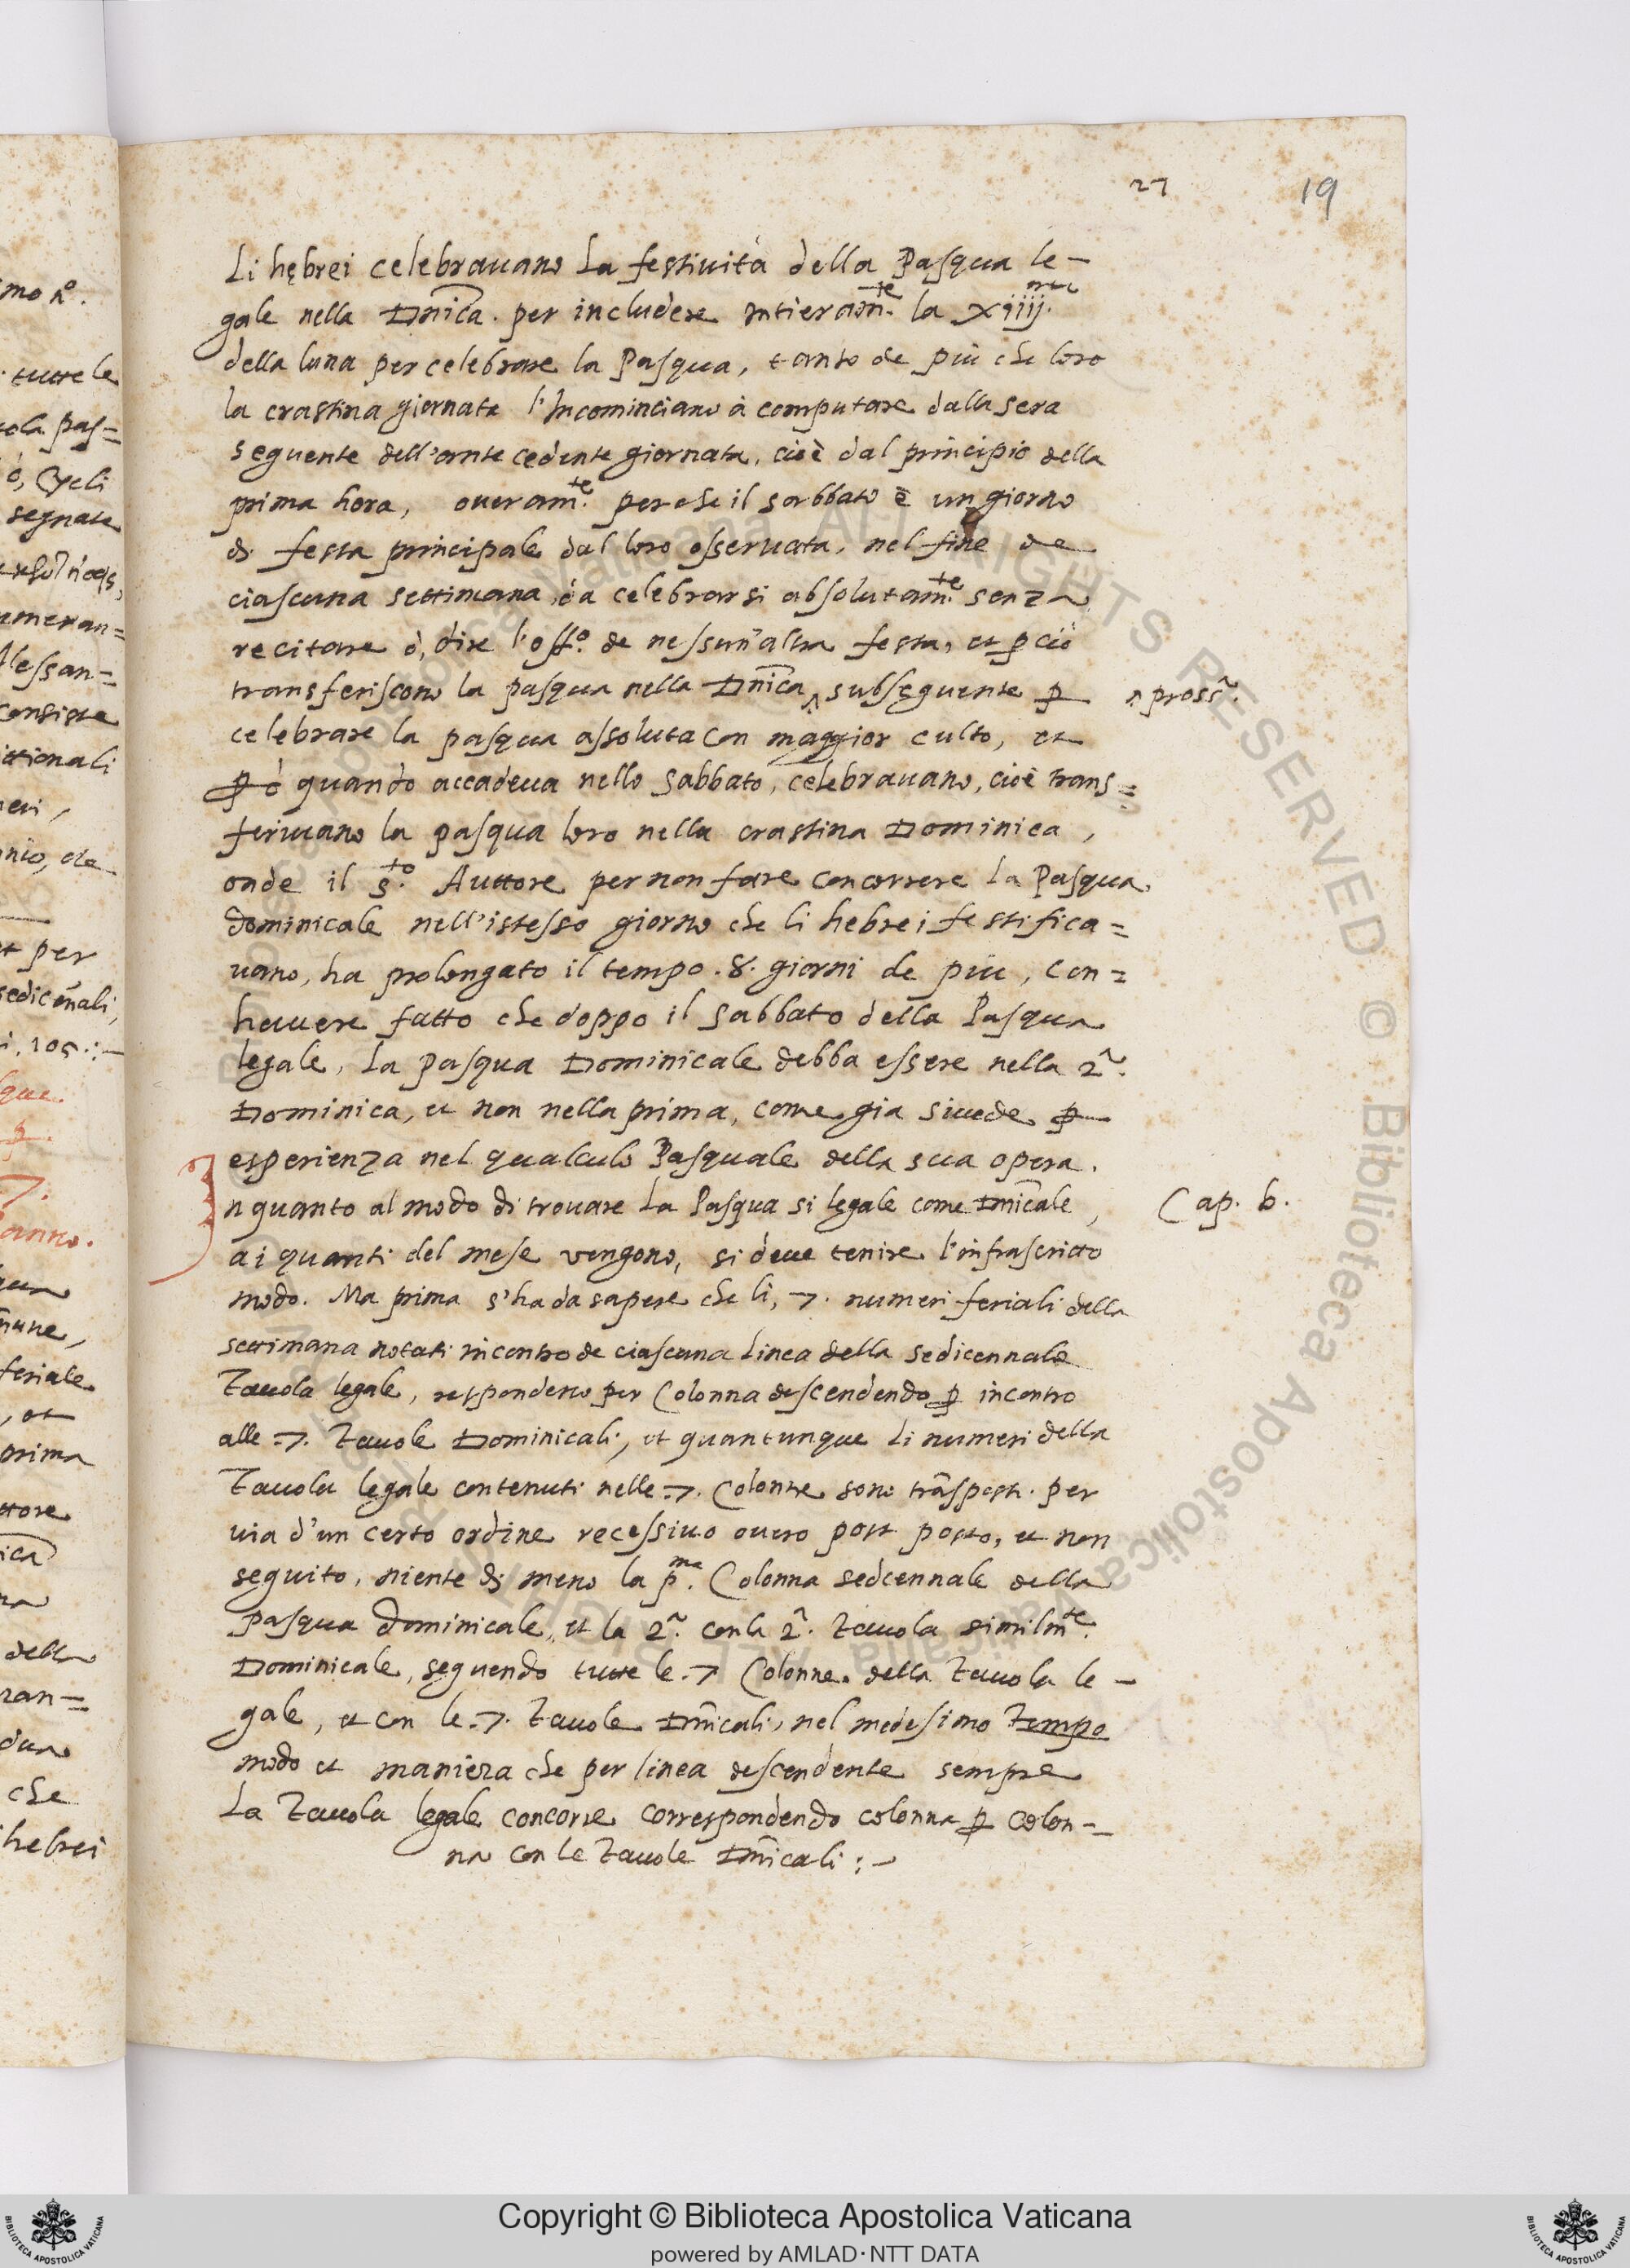 27
19
Li hębrei celebrauano La festiuità della Pasqua le-
gale nella Dn̄ica. per includere intieram̄.te la xiiij.ma
della luna per celebrare la Pasqua, tanto de più che loro
la crastina giornata l'Incominciano à computare dalla sera
seguente dell'antecedente giornata, cioè dal principio della
prima hora, oueram.te perche il sabbato è un giorno
di festa principale dal loro osseruata, nel fine de
ciascuna settimana, da celebrarsi absolutam.te senza
recitare ò, dire l'off.o de nessun'altra festa, et ꝑ ciò
transferiscono la pasqua nella Dn̄ica ^ subsęguente ꝑ
^ pross.a
celebrare la pasqua assoluta con maggior culto, et
ꝑò quando accadeua nello sabbato, celebrauano, cioè trans=
feriuano la pasqua loro nella crastina Dominica,
onde il s.to Auttore per non fare concorrere La Pasqua
dominicale nell'istesso giorno che li hebrei festifica=
uano, ha prolongato il tempo .8. giorni de più, con=
hauere fatto che doppo il sabbato della Pasqua
legale, La pasqua Dominicale debba essere nella 2.a
Dominica, et non nella prima, come gia si uede ꝑ
esperienza nel qualculo Pasquale della sua opera.
In quanto al modo di trouare La Pasqua si lęgale come Dn̄icale,
Cap. b.
a i quanti del mese vengono, si deue tenire l'infrascritto
modo. Ma prima s'ha da sapere che li, 7. numeri feriali della
settimana notati incontro de ciascuna Linea della sedicennale
Tauola legale, respondeno per Colonna descendendo ꝑ incontro
alle .7. Tauole Dominicali, et quantunque Li numeri della
Tauola legale contenuti nelle .7. Colonne sono trāsposti per
uia d'un certo ordine recessiuo ouero post posto, et non
seguito, niente di meno la p.ma Colonna sedcennale della
pasqua Dominicale, et la 2.a con la 2.a Tauola similm.te
Dominicale, seguendo tutte le .7 Colonne della Tauola le-
gale, et con le .7. Tauole Dn̄icali, nel medesimo Tempo
modo et maniera che per linea descendente sempre
La Tauola legale concorre correspondendo colonna ꝑ colon-
na con le Tauole Dn̄icali :-
mo n.o
tutte le
ola pas=
ò, Cycli
segnate
umeran=
llessan=
consiste
ittionali
nio, de
et per
sedicēnali,
i, 105 :-
que.
7.
anno.
feriale
, et
prima
ttore
ica
na
della
ran=
che
hebrei
Copyright © Biblioteca Apostolica Vaticana
powered by AMLAD·NTT DATA